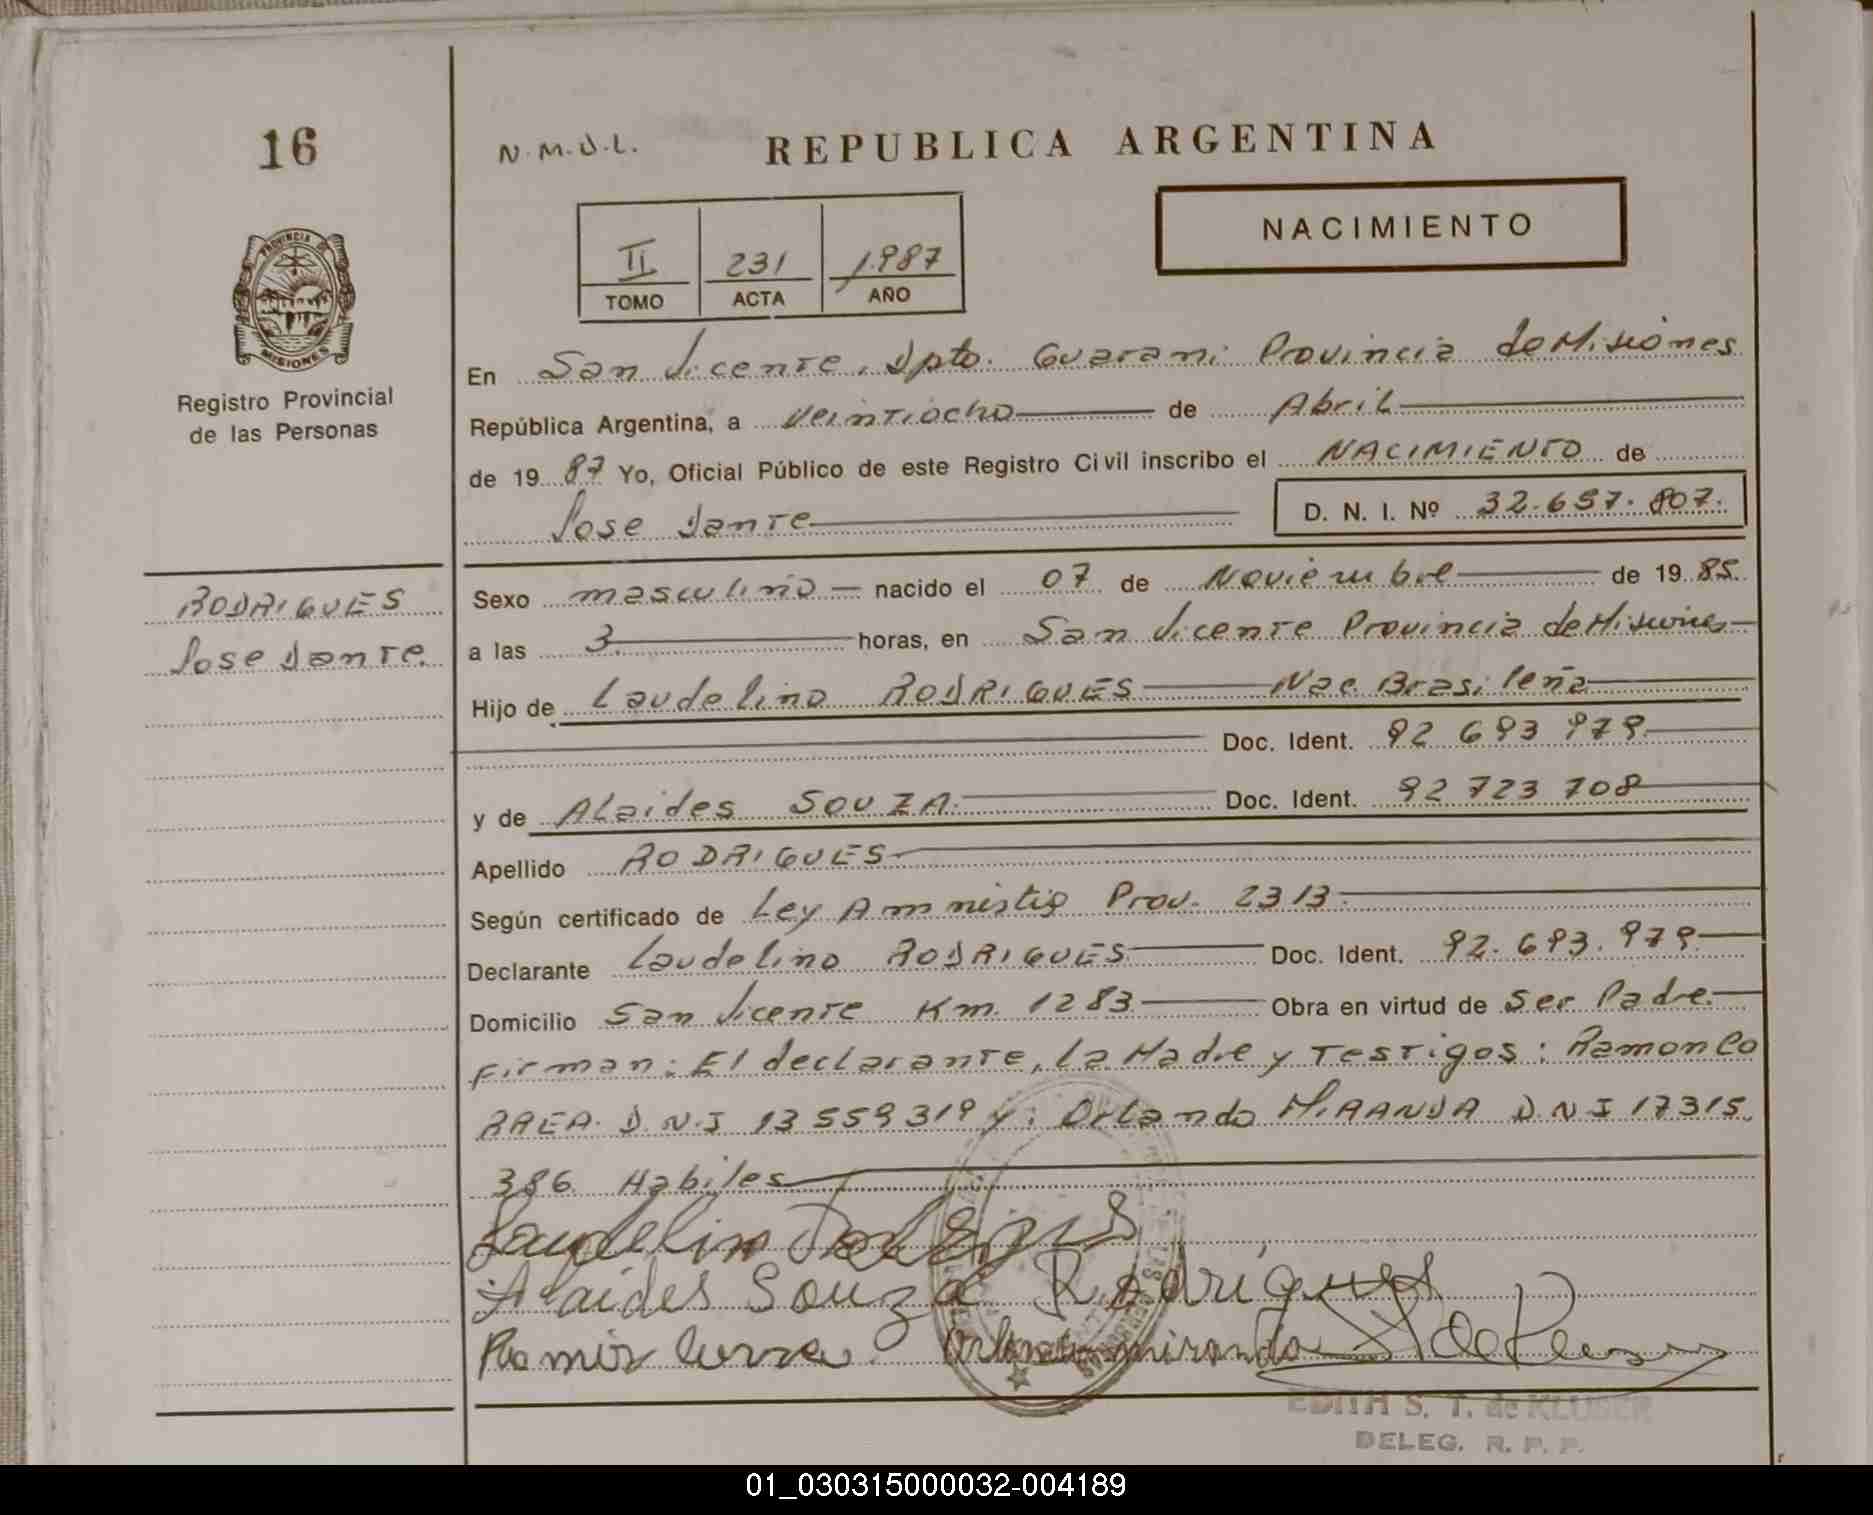 16
N.M.J.L.
REPUBLICA ARGENTINA
NACIMIENTO
II 231 1.987
TOMO ACTA AÑO
PROVINCIA DE
MISIONES
Registro Provincial
de las Personas
En San Vicente, Dpto. Guarani Provincia de Misiones
República Argentina, a veintiocho de Abril
de 19 87 Yo, Oficial Público de este Registro Civil inscribo el NACIMIENTO de
Jose Dante D. N. I. Nº 32.657.807.
RODRIGUES
Jose Dante.
Sexo masculino nacido el 07 de Noviembre de 19 85.
a las 3 horas, en San Vicente Provincia de Misiones
Hijo de Laudelino RODRIGUES Nac. Brasileña
Doc. Ident. 92 693 979
y de ALaides SOUZA. Doc. Ident. 92 723 708
Apellido RODRIGUES
Según certificado de Ley Amnistia Prov. 2313.
Declarante Laudelino RODRIGUES Doc. Ident. 92.693.979
Domicilio San Vicente Km. 1283 Obra en virtud de Ser Padre.
Firman: El declarante, La Madre y Testigos: Ramon Co
RREA. D.N.I 13 559 319 y: Orlando MIRANDA D.N.I 17315.
386 Habiles
Alaides Souza Rodrigues
Orlando miranda
EDITH S. T. de KLUBER
DELEG. R. P. P.
01_030315000032-004189